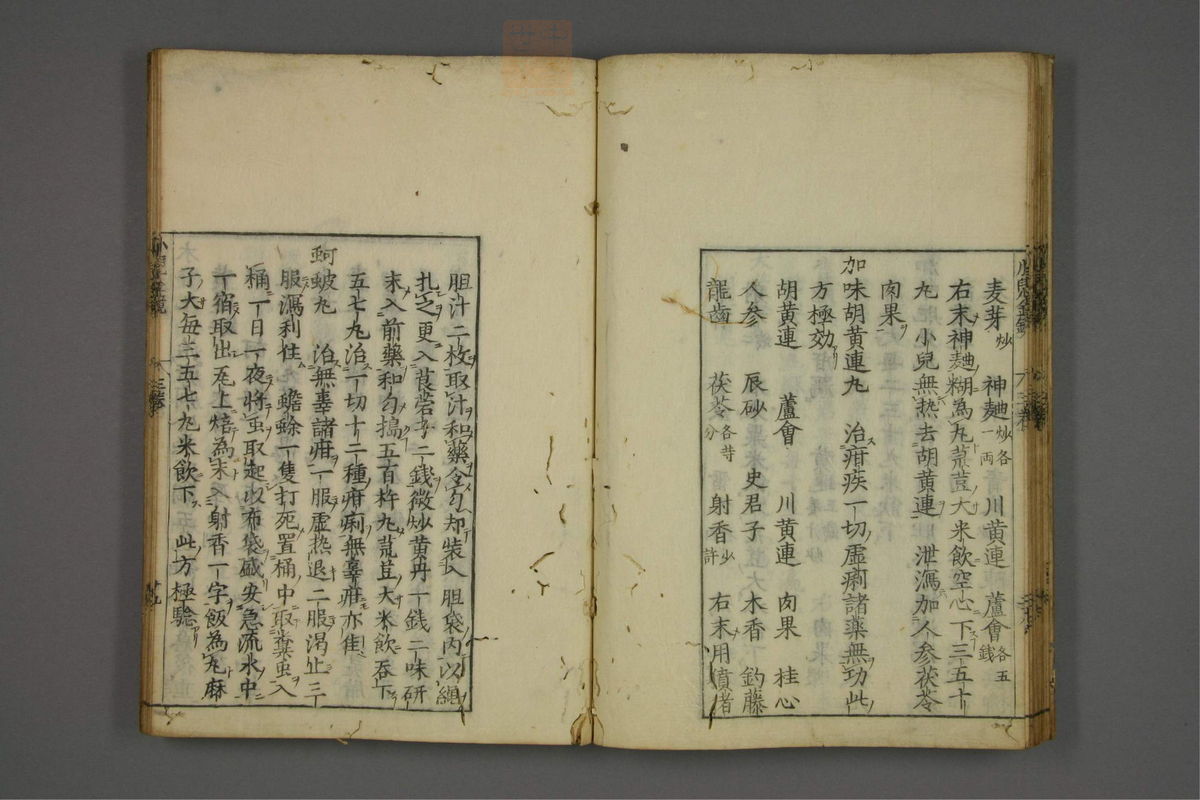 麦芽炒 神麯炒各一両 川黄連 蘆會各五銭
右末神麯糊為丸菉荳大米飲空心下三五十
丸小兒無热去胡黄連泄瀉加人参茯苓
肉果
加味胡黄連丸 治疳疾一切虚痢諸薬無功此
方極効
胡黄連 蘆會 川黄連 肉果 桂心
人参 辰砂 史君子 木香 釣藤
龍齒 茯苓各等分 射香少許 右末用㹀猪
胆汁二枚取汁和藥令匀却装入胆袋内以綫
扎之更入莨菪子二銭微炒黄丹一銭二味研
末入前藥和匀搗五百杵丸菉荳大米飲吞下
五七丸治一切十二種疳痢無辜疳亦佳
蚵蚾丸 治無辜諸疳一服虚热退二服渴止三
服瀉利住蟾蜍一隻打死置桶中取糞虫入
桶一日一夜將虫取起以布袋盛安急流水中
一宿取出瓦上焙為末入射香一字飯為丸麻
子大每三五七丸米飲下此方極驗